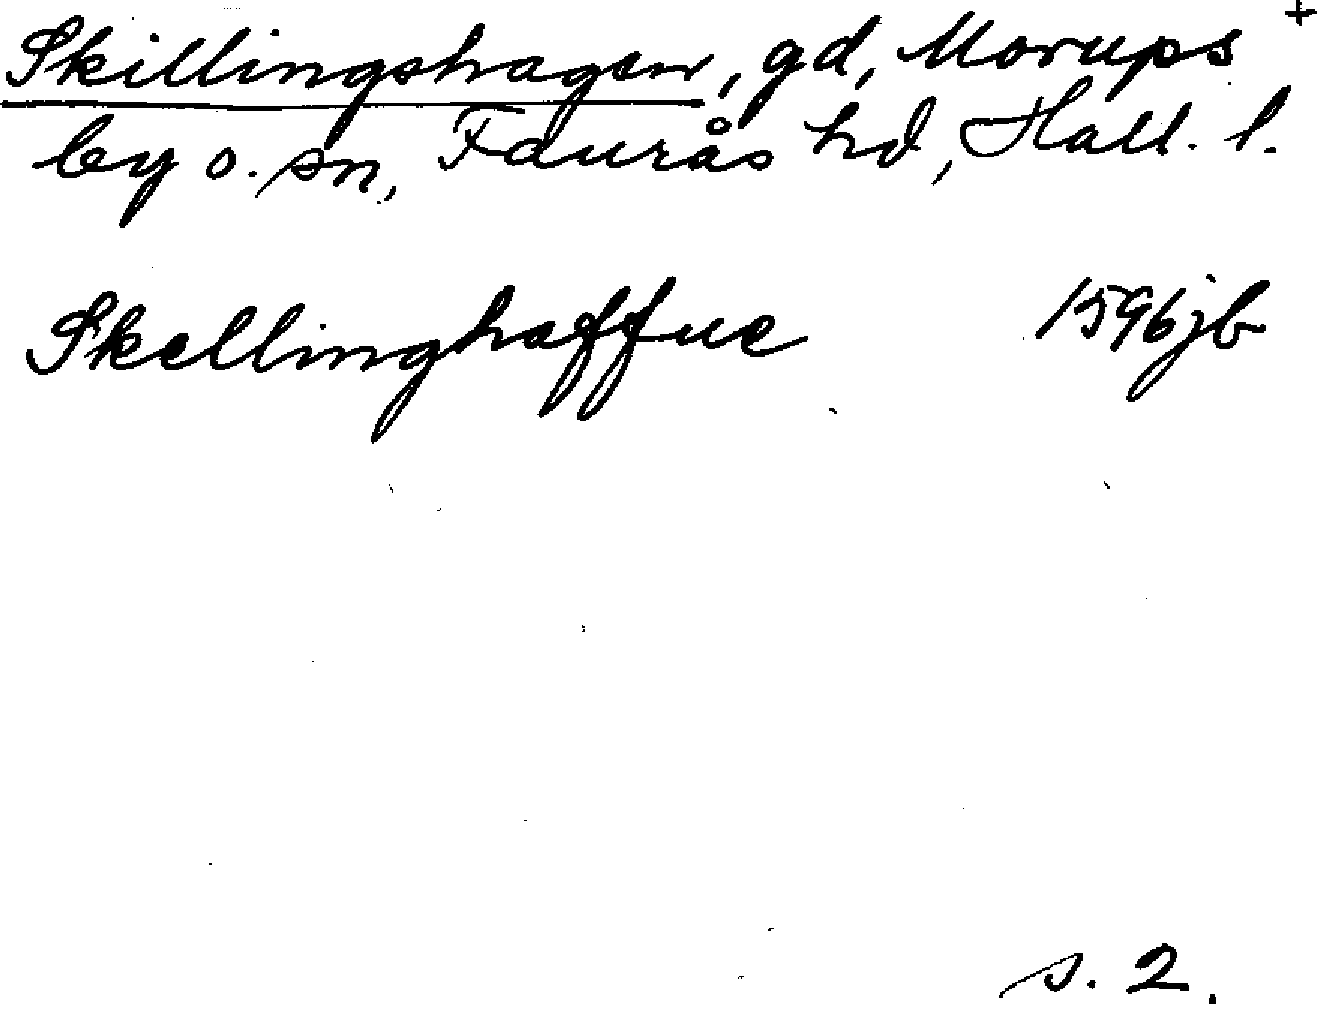 Skillingshagen, gd, Morups +
by o. sn, Faurås hd, Hall. l.
Skellinghaffue 1596 jb
s. 2.